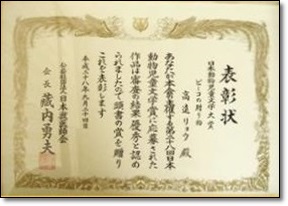 表彰状
日本動物児童文学大賞
ピーコの贈り物
高遠リョウ 殿
あなたが本会が主催する第二十八回日本
動物児童文学賞に応募された
作品は審査の結果優秀と認め
られましたので頭書の賞を贈り
これを表彰します
平成二十八年九月二十四日
公益社団法人日本獣医師会
会長 藏内勇夫